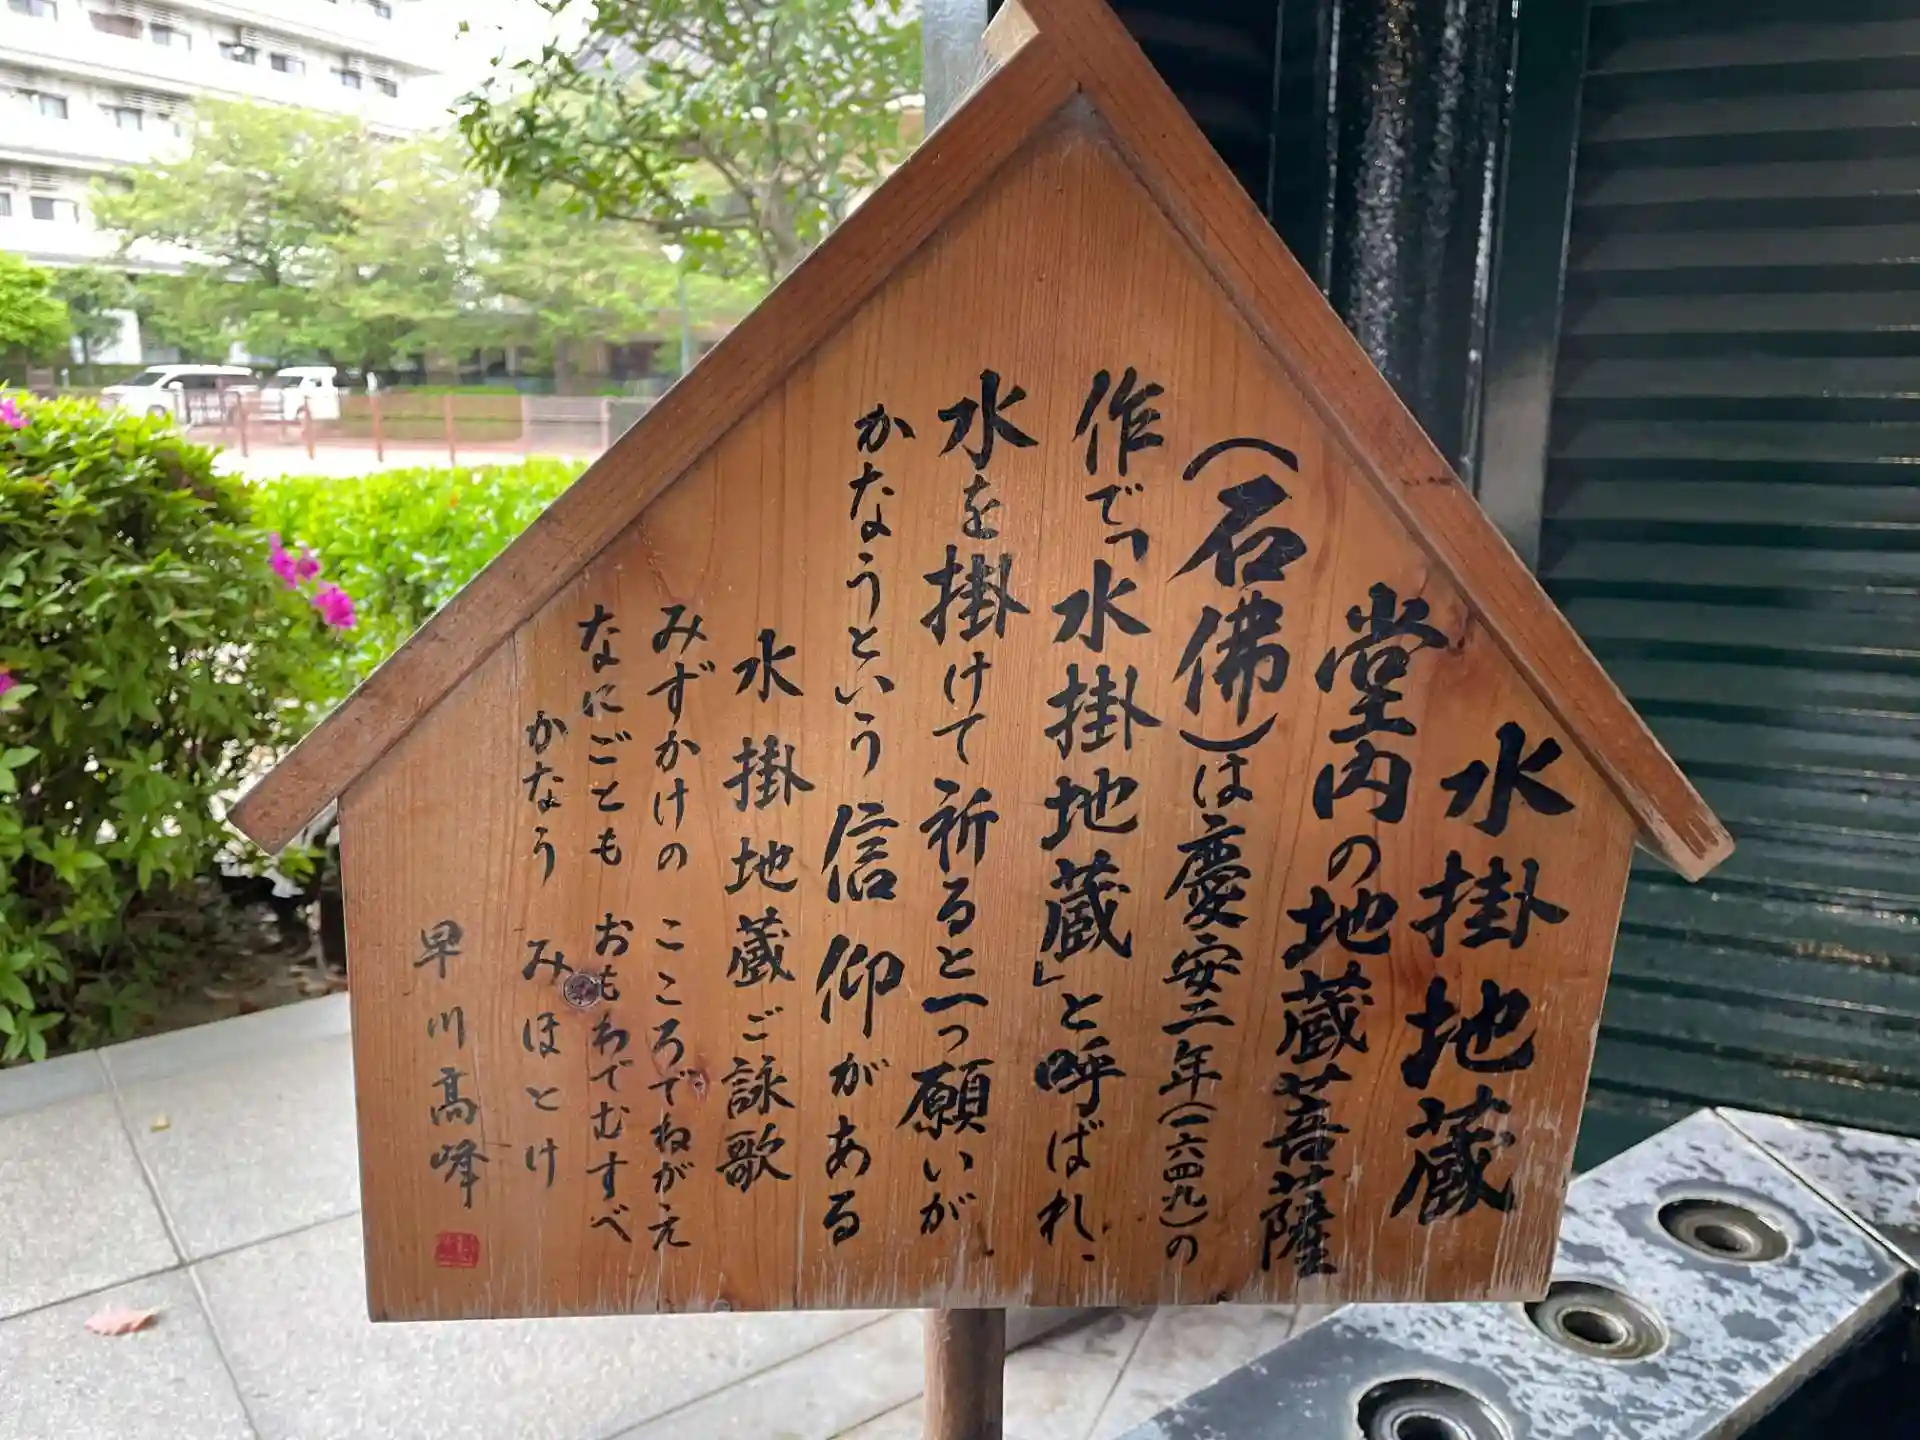 水掛地蔵
堂内の地蔵菩薩
(石佛)は慶安二年(一六四九)の
作で「水掛地蔵」と呼ばれ、
水を掛けて祈ると一つ願いが
かなうという信仰がある
水掛地蔵ご詠歌
みずかけの こころでねがえ
なにごとも おもわでむすべ
かなう みほとけ
早川高峰